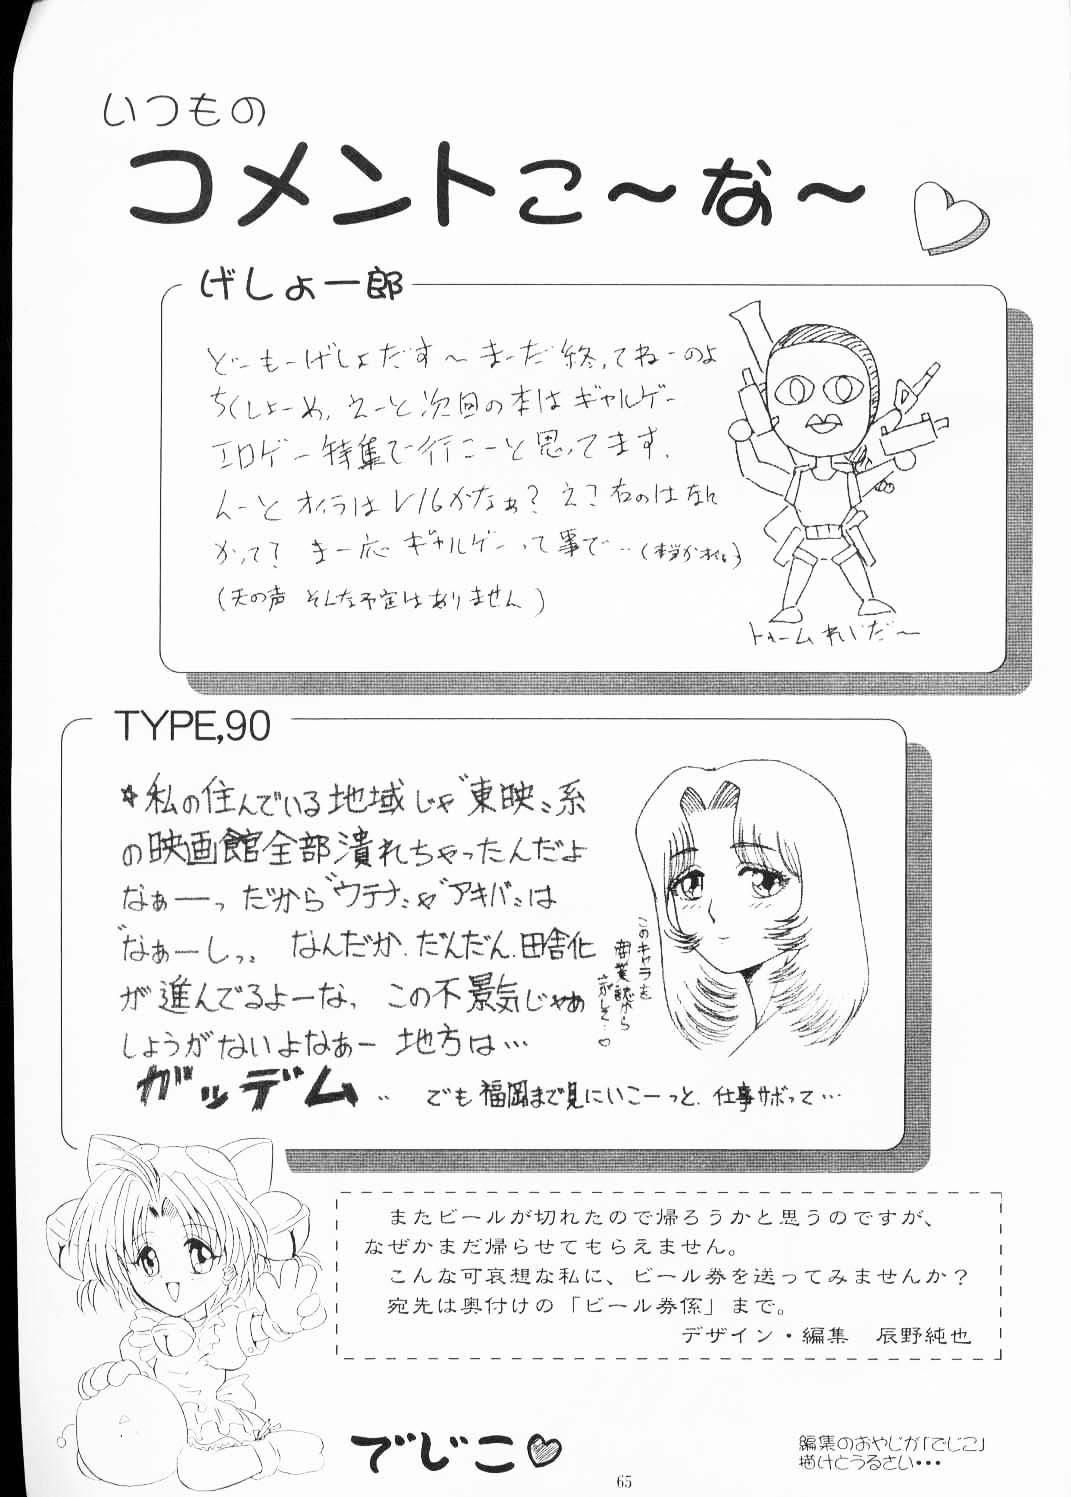 いつもの
コメントこ〜な〜
げしょ一郎
どーもーげしょだす〜まーだ終ってねーのよ
ちくしょーめ、えーと次回の本はギャルゲー
エロゲー特集で行こーと思ってます.
んーとオイラはVノ6かなぁ?えっ右のはなん
かって?まー応ギャルゲーって事で‥
(天の声 そんな予定はありません)
トゥームれいだ〜
TYPE,90
☆私の住んでいる地域じゃ"東映"系
の映画館全部潰れちゃったんだよ
なぁーっ だから"ウテナ"や"アキバ"は
"なぁーしっ" なんだか、だんだん、田舎化
が進んでるよーな、この不景気じゃぁ
しょうがないよなぁー 地方は…
ガッデム‥ でも福岡まで見にいこーっと、仕事サボって…
このキャラを
商業誌から
またビールが切れたので帰ろうかと思うのですが、
なぜかまだ帰らせてもらえません。
こんな可哀想な私に、ビール券を送ってみませんか?
宛先は奥付けの「ビール券係」まで。
デザイン・編集 辰野純也
でじこ♡
編集のおやじが「でじこ」
描けとうるさい・・・
65